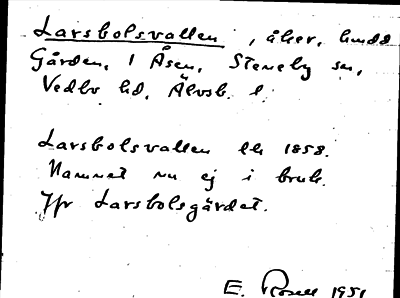 Larsbolsvallen, åker, hmdd
Gården, 1 Åsen, Steneby sn,
Vedbo hd, Älvsb. l.
Larsbolsvallen lh 1858.
Namnet nu ej i bruk.
Jfr Larsbolsgärdet.
E. Rosell 1951